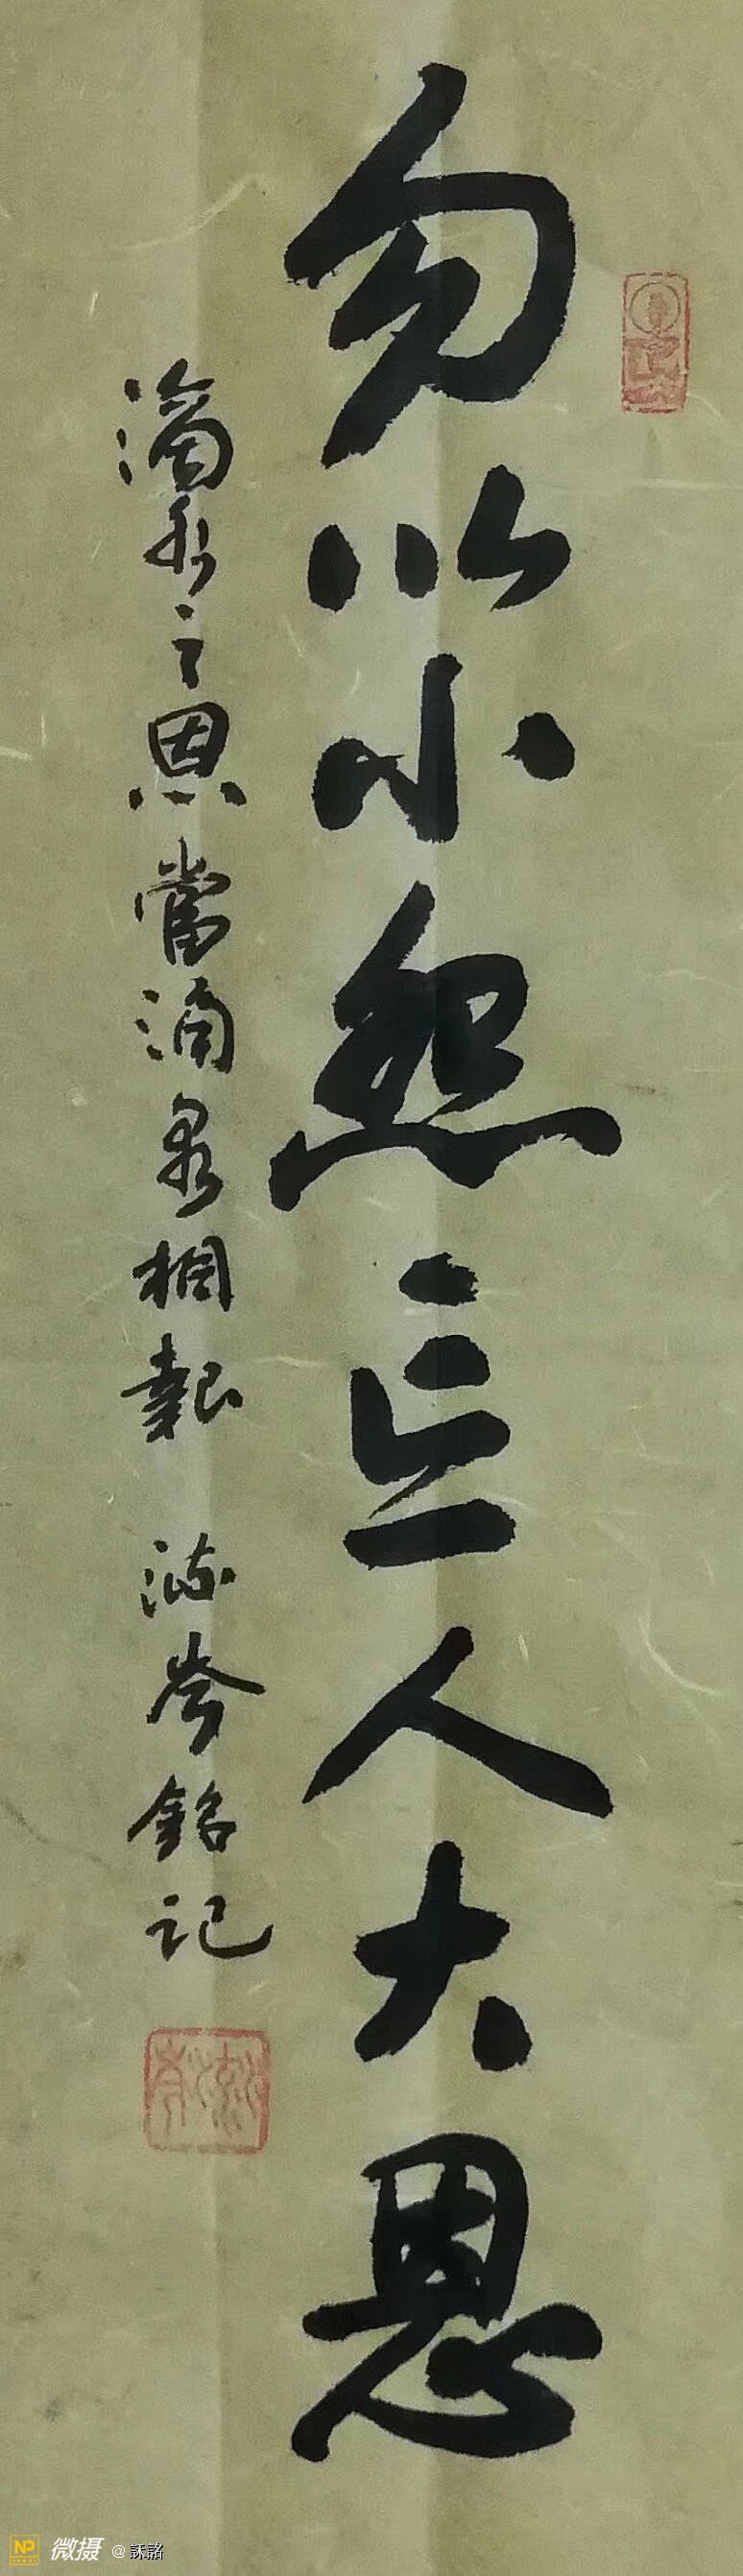 勿以小怨忘人大恩
滴水之恩當涌泉相報 岑銘记
NP 微摄 @訸詺